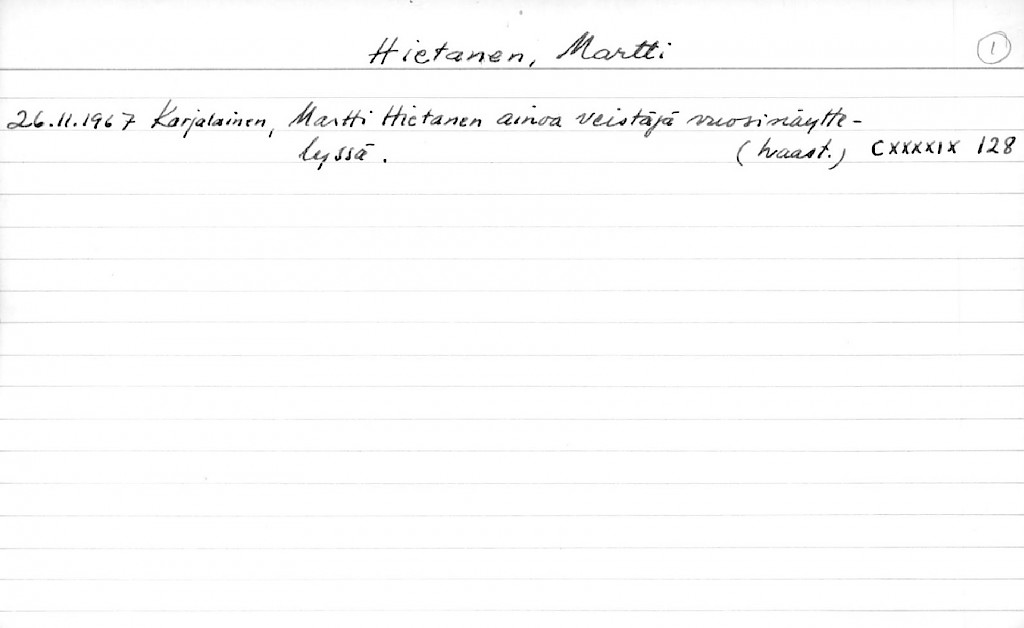 Hietanen, Martti 1
26.11.1967 Karjalainen, Martti Hietanen ainoa veistäjä vuosinäytte-
lyssä. (haast.) CXXXXIX 128